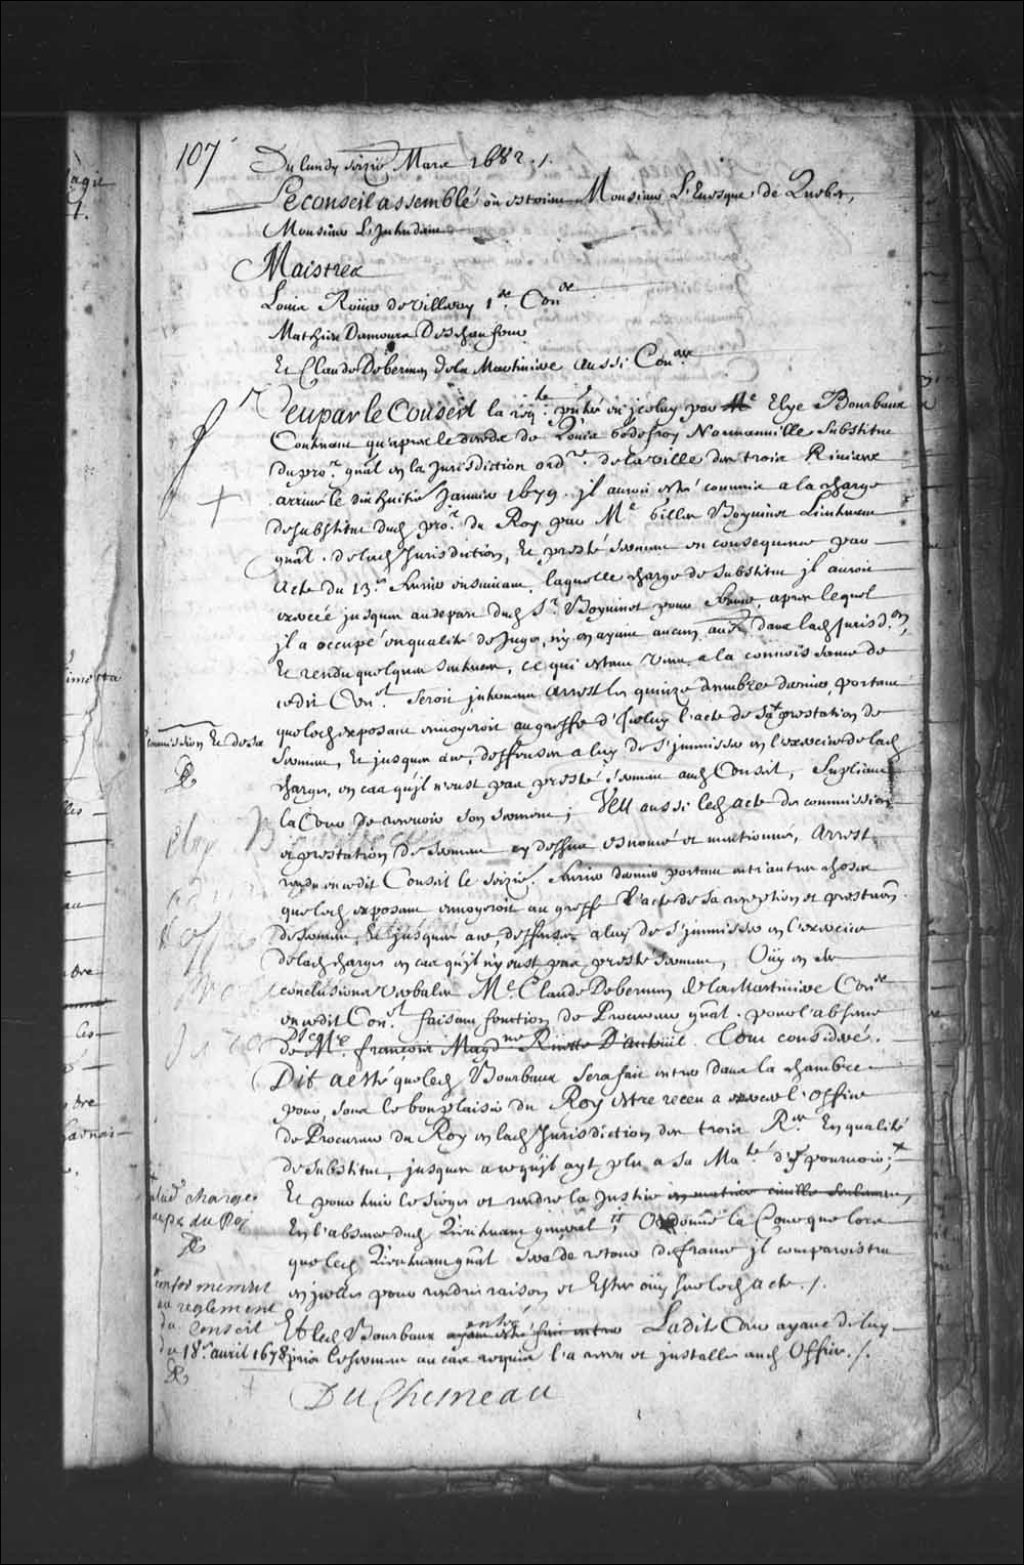 107 Du lundy seizie Mars 1682 ./.
Le conseil assemblé où estoient Monsieur L'Evesque de Quebec,
Monsieur L'Intendant
Maistres
Louis Roüer de Villeray 1er Coner
Mathieu Damours Deschaufour
Et Claude De bermen de la Martiniere aussi Coners
Veu par le Conseil la reqte pntée en iceluy par Me Elye Bourbaux
Contenant qu'apres le deceds de Louis Godefroy Normanville Substitut
du pror gnâl en la Jurisdiction ordre de la ville des trois Rivieres
arrivé le dix huitie Janvier 1679. il auroit esté commis a la charge
de substitut dud pror du Roy par Me Gilles Boyvinet Lieutenant
gnâl. de lad Jurisdiction, Et presté serment en consequence par
Acte du 13e Fevrier ensuivant, laquelle charge de substitut il auroit
exercée jusques au depart dud Sr Boyvinet pour France, apres lequel
il a occupé en qualité de Juge, n'y en ayant aucun autre dans lad Jurisdon,
Et rendu quelques sentences, ce qui estant venu a la connoissance de
cedit Conel seroit intervenu arrest les quinze decembre dernier, portant
que led exposant envoyeroit au greffe d'iceluy l'acte de sa prestation de
serment, Et jusques a ce, deffenses a luy de s'immiscer en l'exercice de lad
Commission Et de sa
charge, en cas qu'il n'eust pas presté serment aud Conseil, Supliant
la Cour de recevoir son serment; Veu aussi led acte de commission
et prestation de serment cy dessus enoncé et mentionné, Arrest
rendu en cedit Conseil le seizie. Fevrier dernier portant entr'autres choses
que led exposant envoyeroit au greffe l'acte de sa reception et prestaôn
de serment, Et jusques a ce, deffenses a luy de s'immiscer en l'exercice
de lad charge en cas qu'il n'y eust pas presté serment, Oüy en ses
conclusions verbales Me Claude De bermen de la Martiniere Coner
en cedit Conel faisant fonction de Procureur gnâl. pour l'absence
de Me françois Magdne Ruette D'auteuil. Tout consideré.
Dit a esté que led Bourbaux sera fait entrer dans la chambre
pour, sous le bon plaisir du Roy estre receu a exercer l'Office
de Procureur du Roy en lad Jurisdiction des trois Rres En qualité
de substitut, jusques a ce qu'il ayt plu a Sa Maté d'y pourvoir;
Et pour tenir le siege et rendre la Justice en matiere civille seulement,
aud. charge
de pr du Roy
En l'absence dud Lieutenant general; Ordonne la Cour que lors
que led Lieutenant gnâl sera de retour de france il comparoistra
en icelle pour rendre raison et Estre oüy sur led acte ./.
conformement
au reglement
du Conseil
du 18e avril 1678
Et led Bourbaux ayant esté fait entrer entré Ladite Cour ayant de luy
pris le serment au cas requis l'a receu et installé aud Office ./.
DuChesneau